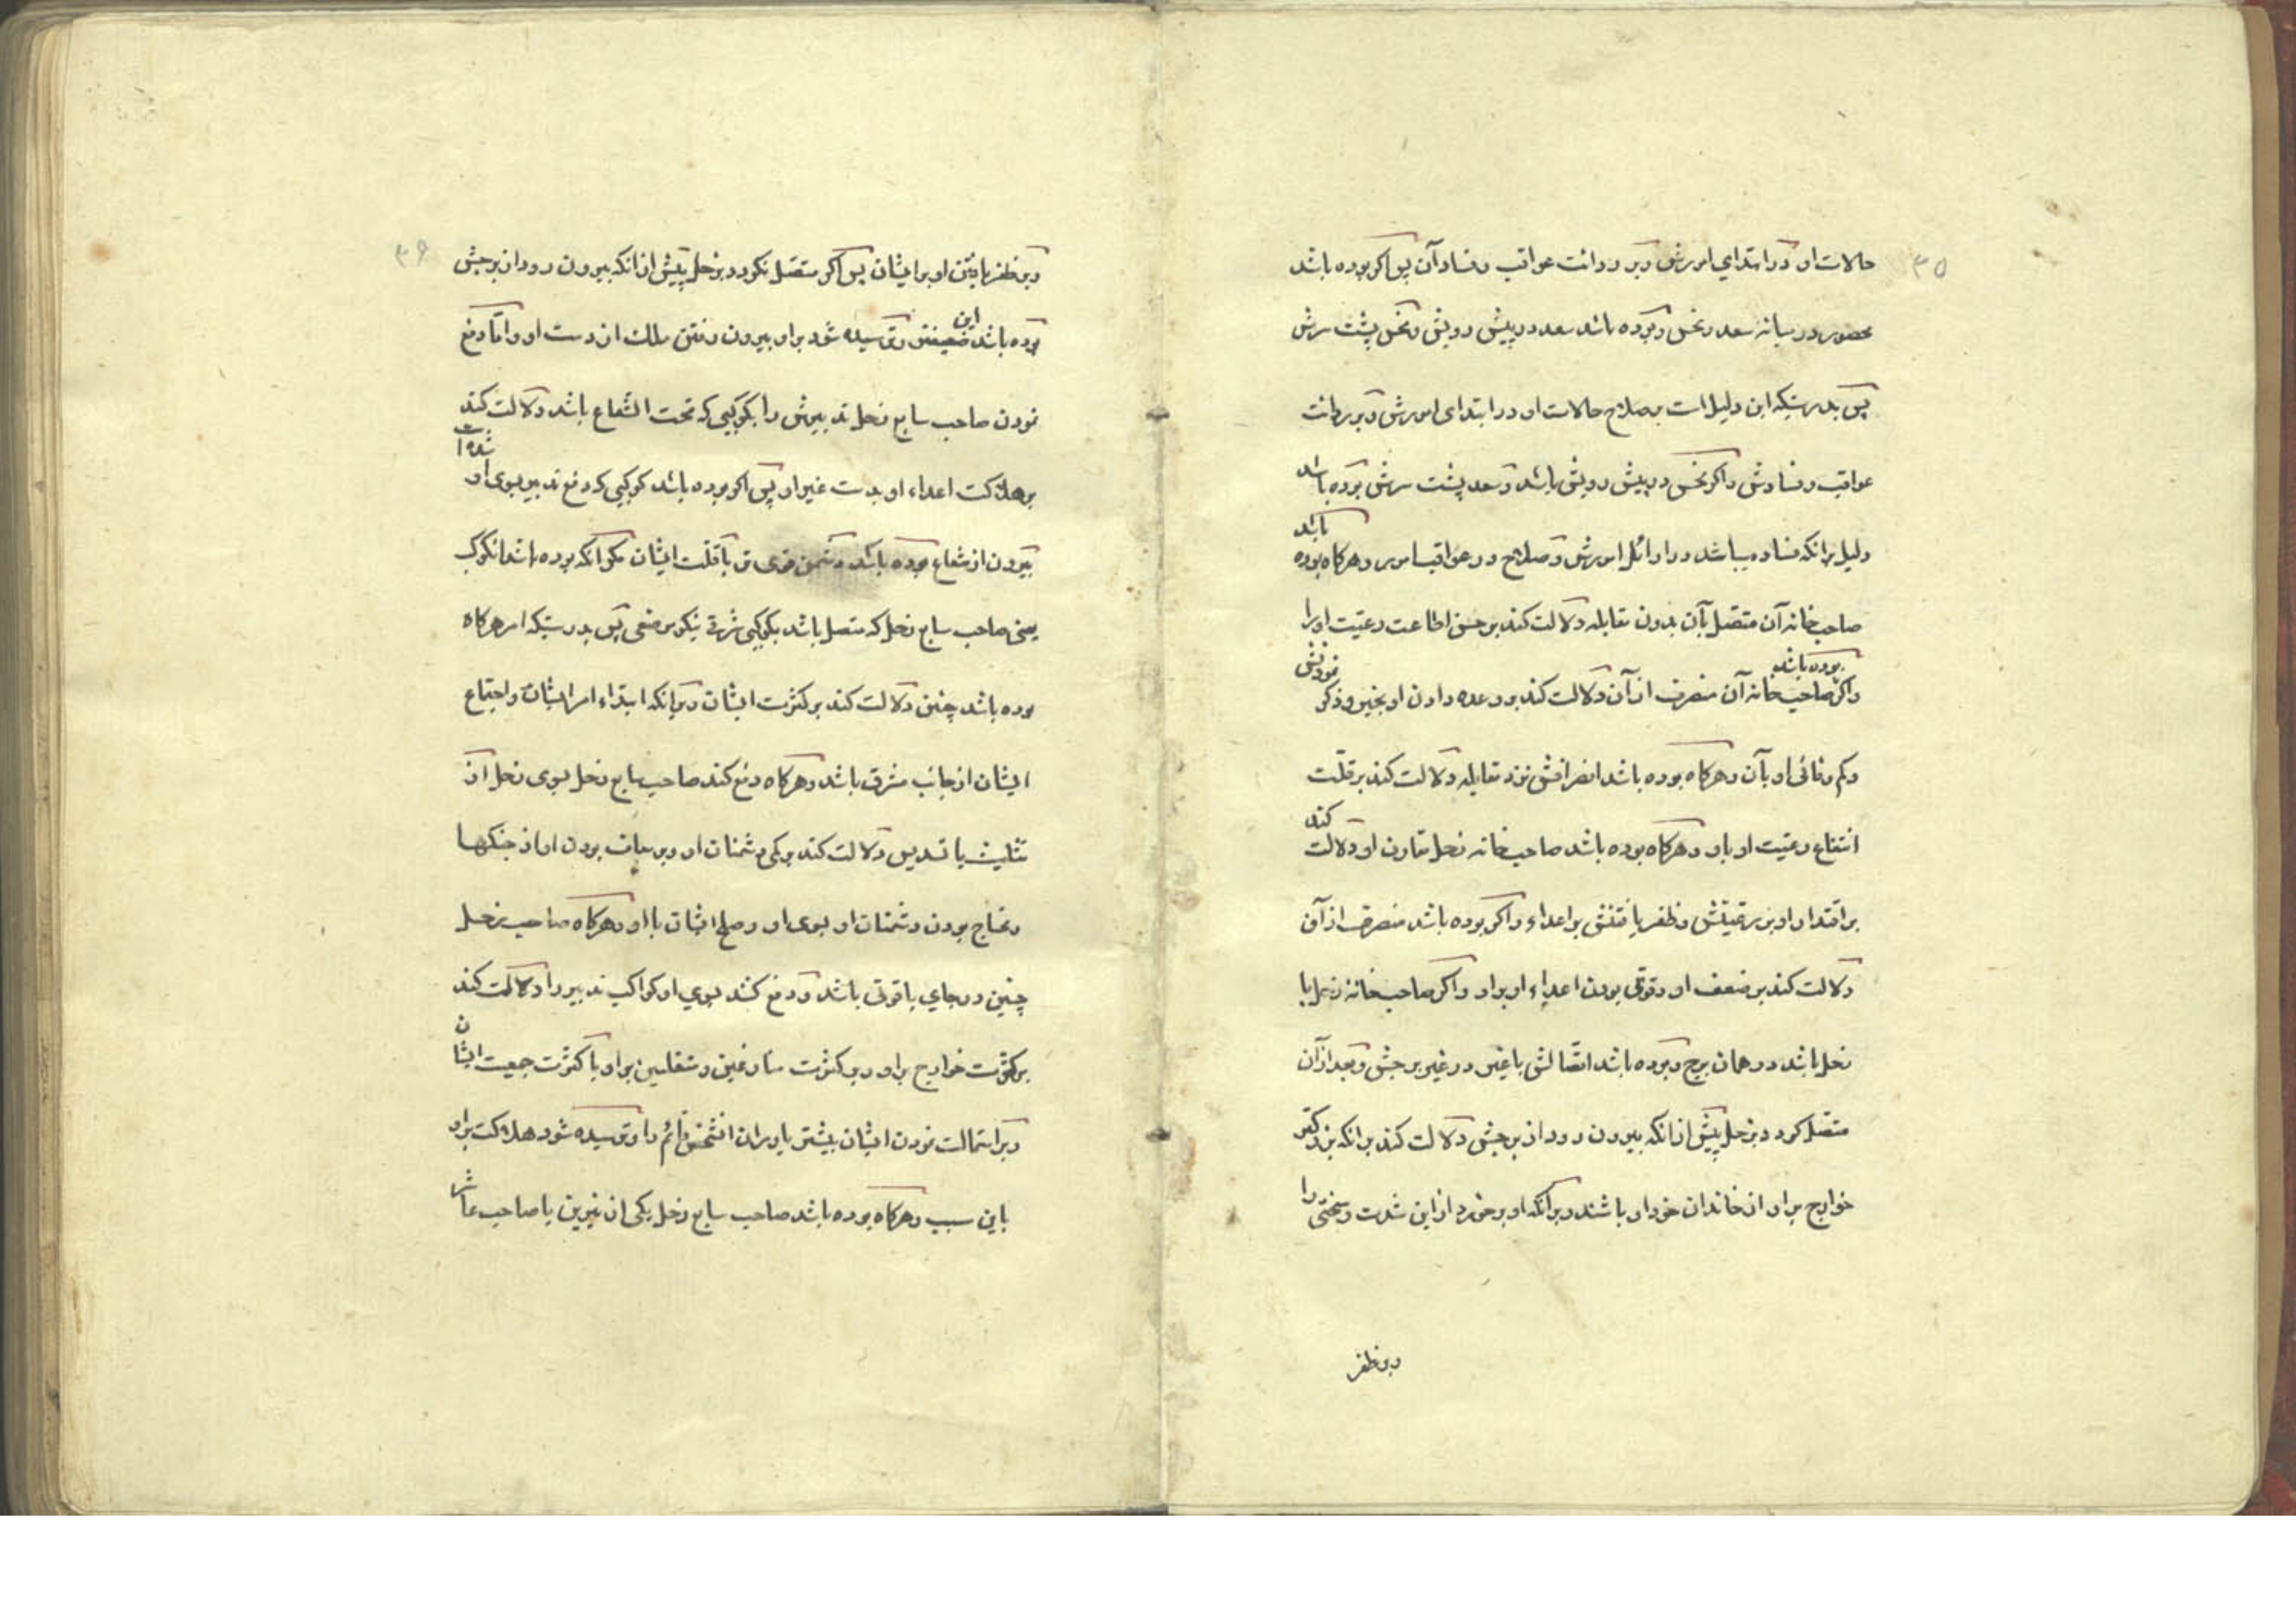 ۳۵
حالات او در ابتدای امورش و بر ردائت عواقب و فساد آن پس اکر بوده باشد
محصور در میانه سعد و نحس و بوده باشد سعد در پیش رویش و نحس پشت سرش
پس بدرستیکه این دلیل است بصلاح حالات او در ابتدای امورش و بر ردائت
عواقب و فسادش و اکر نحس در پیش رویش باشد و سعد پشت سرش بوده باشد
دلیل برانکه فساد میباشد در اوائل امورش و صلاح در عواقب امور و هرکاه بوده باشد
صاحبخانه آن متصل بآن بدون مقابله دلالت کند بر حسن اطاعت رعیت او را
و اکر صاحبخانه آن بوده باشد منصرف از آن دلالت کند بر وعده دادن او بخیر و ذکر نمودنش
و کم وفائی او بآن و هرکاه بوده باشد انصرافش نزد مقابله دلالت کند بر قلت
انتفاع رعیت او باو و هرکاه بوده باشد صاحبخانه زحل مقارن او دلالت کند
بر اقتدار او بر رعیتش و ظفر یافتنش بر اعداء و اکر بوده باشد منصرف از آن
دلالت کند بر ضعف او و قوی بودن اعداء او بر او و اکر صاحبخانه زحل با
زحل باشد در همان برج و بوده باشد اتصالش با غیر در غیر برجش و بعد از آن
متصل کردد بزحل پیش از انکه بیرون رود از برجش دلالت کند برانکه بزرکتر
خوارج بر او از خاندان خود او باشند و برانکه او بر خورد از این شدت و سختی را
و بر ظفر
۳۶
و بر ظفر یافتن او بر ایشان پس اکر متصل نکردد بزحل پیش از انکه بیرون رود از برجش
بوده باشد این ضعیفتر و ترسیده شود بر او بیرون رفتن ملک از دست او و اما دفع
نمودن صاحب سابع زحل تدبیرش را بکوکبی که تحت الشعاع باشد دلالت کند
بر هلاکت اعداء او بدست غیر او پس اکر بوده باشد کوکبی که دفع تدبیر بسوی او شده است
بیرون از شعاع بوده باشد دشمن قوی تر با قلت ایشان مکر انکه بوده باشد انکوکب
یعنی صاحب سابع زحل که متصل باشد بکوکبی شرقی نیکو موضعی پس بدرستیکه امر هرکاه
بوده باشد چنین دلالت کند بر کثرت ایشان و برانکه ابتداء امر ایشان و اجتماع
ایشان از جانب مشرق باشد و هرکاه دفع کند صاحب سابع زحل بسوی زحل از
تثلیث یا تسدیس دلالت کند بر کمی دشمنان او و بر معاف بودن او از جنکها
و محتاج بودن دشمنان او بسوی او و صلح ایشان با او و هرکاه صاحب زحل
چنین در جای با قوتی باشد و دفع کنند بسوی او کواکب تدبیر را دلالت کند
بر کثرت خوارج بر او و بر کثرت منازعین و متقلبین بر او با کثرت جمعیت ایشان
و بر استمالت نمودن ایشان بیشتر یاوران انشخص قائم را و ترسیده شود هلاکت بر او
باین سبب و هرکاه بوده باشد صاحب سابع زحل یکی از نیرین یا صاحب عاشر